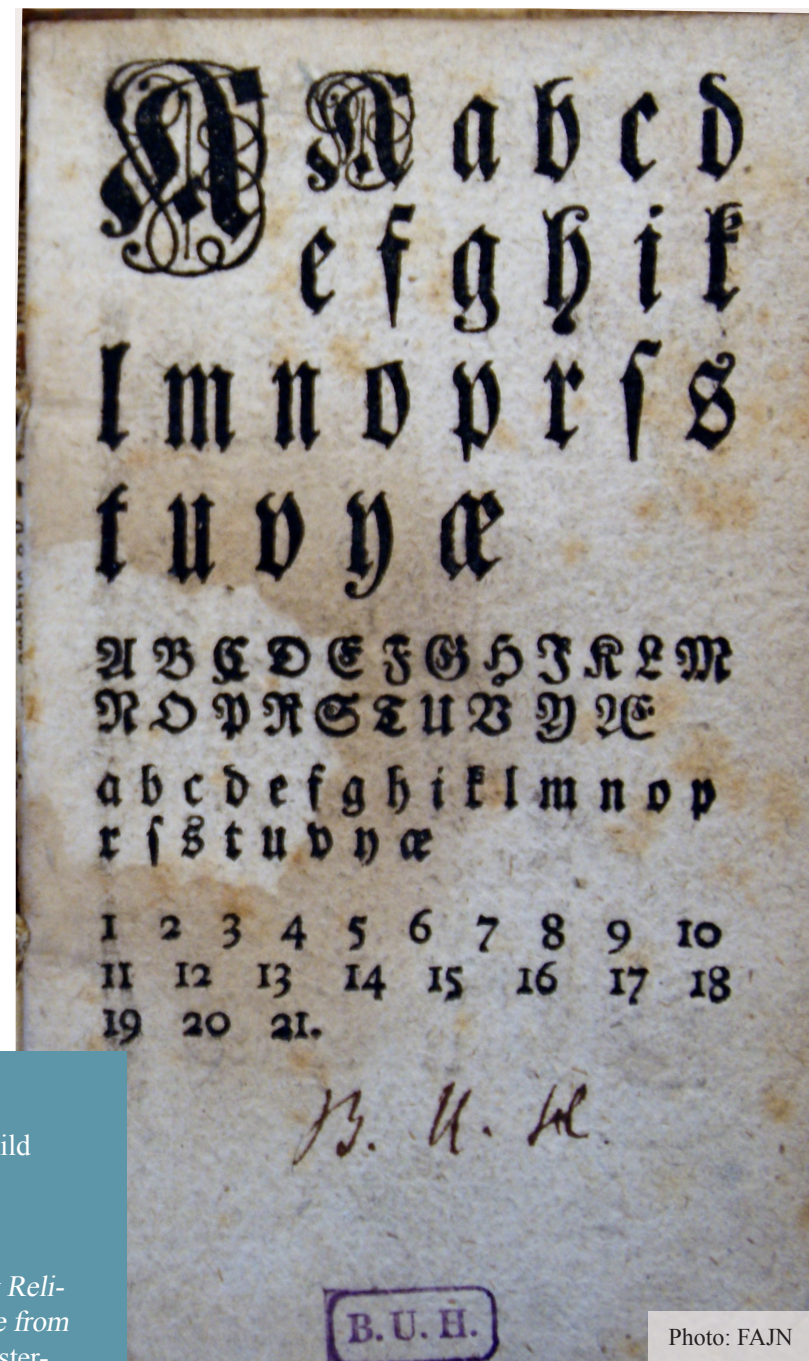 A A a b c d
e f g h i k
l m n o p r ſ s
t u v y æ
A B C D E F G H I K L M
N O P R S T U V Y Æ
a b c d e f g h i k l m n o p
r ſ s t u v y æ
1 2 3 4 5 6 7 8 9 10
11 12 13 14 15 16 17 18
19 20 21.
B. U. H.
B. U. H.
ild
Reli-
e from
ster-
Photo: FAJN